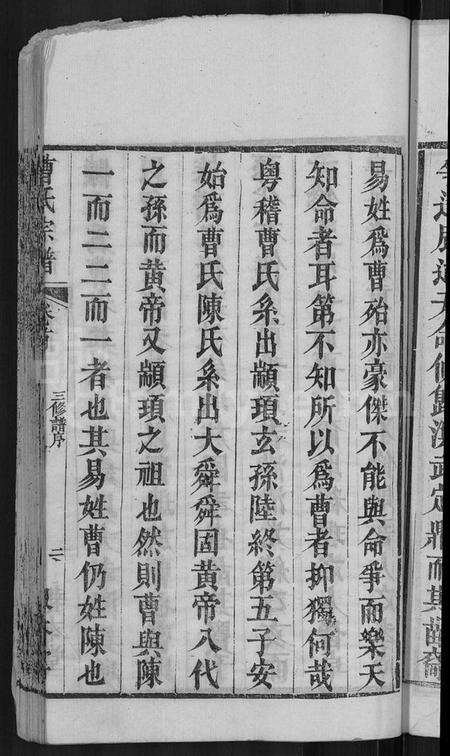 易姓爲曹殆亦豪傑不能與命爭而樂天
知命者耳第不知所以爲曹者抑獨何哉
粵稽曹氏系出顓頊玄孫陸終第五子安
始爲曹氏陳氏系出大舜舜固黃帝八代
之孫而黃帝又顓頊之祖也然則曹與陳
一而二二而一者也其易姓曹仍姓陳也
曹氏宗譜
三修譜序
二